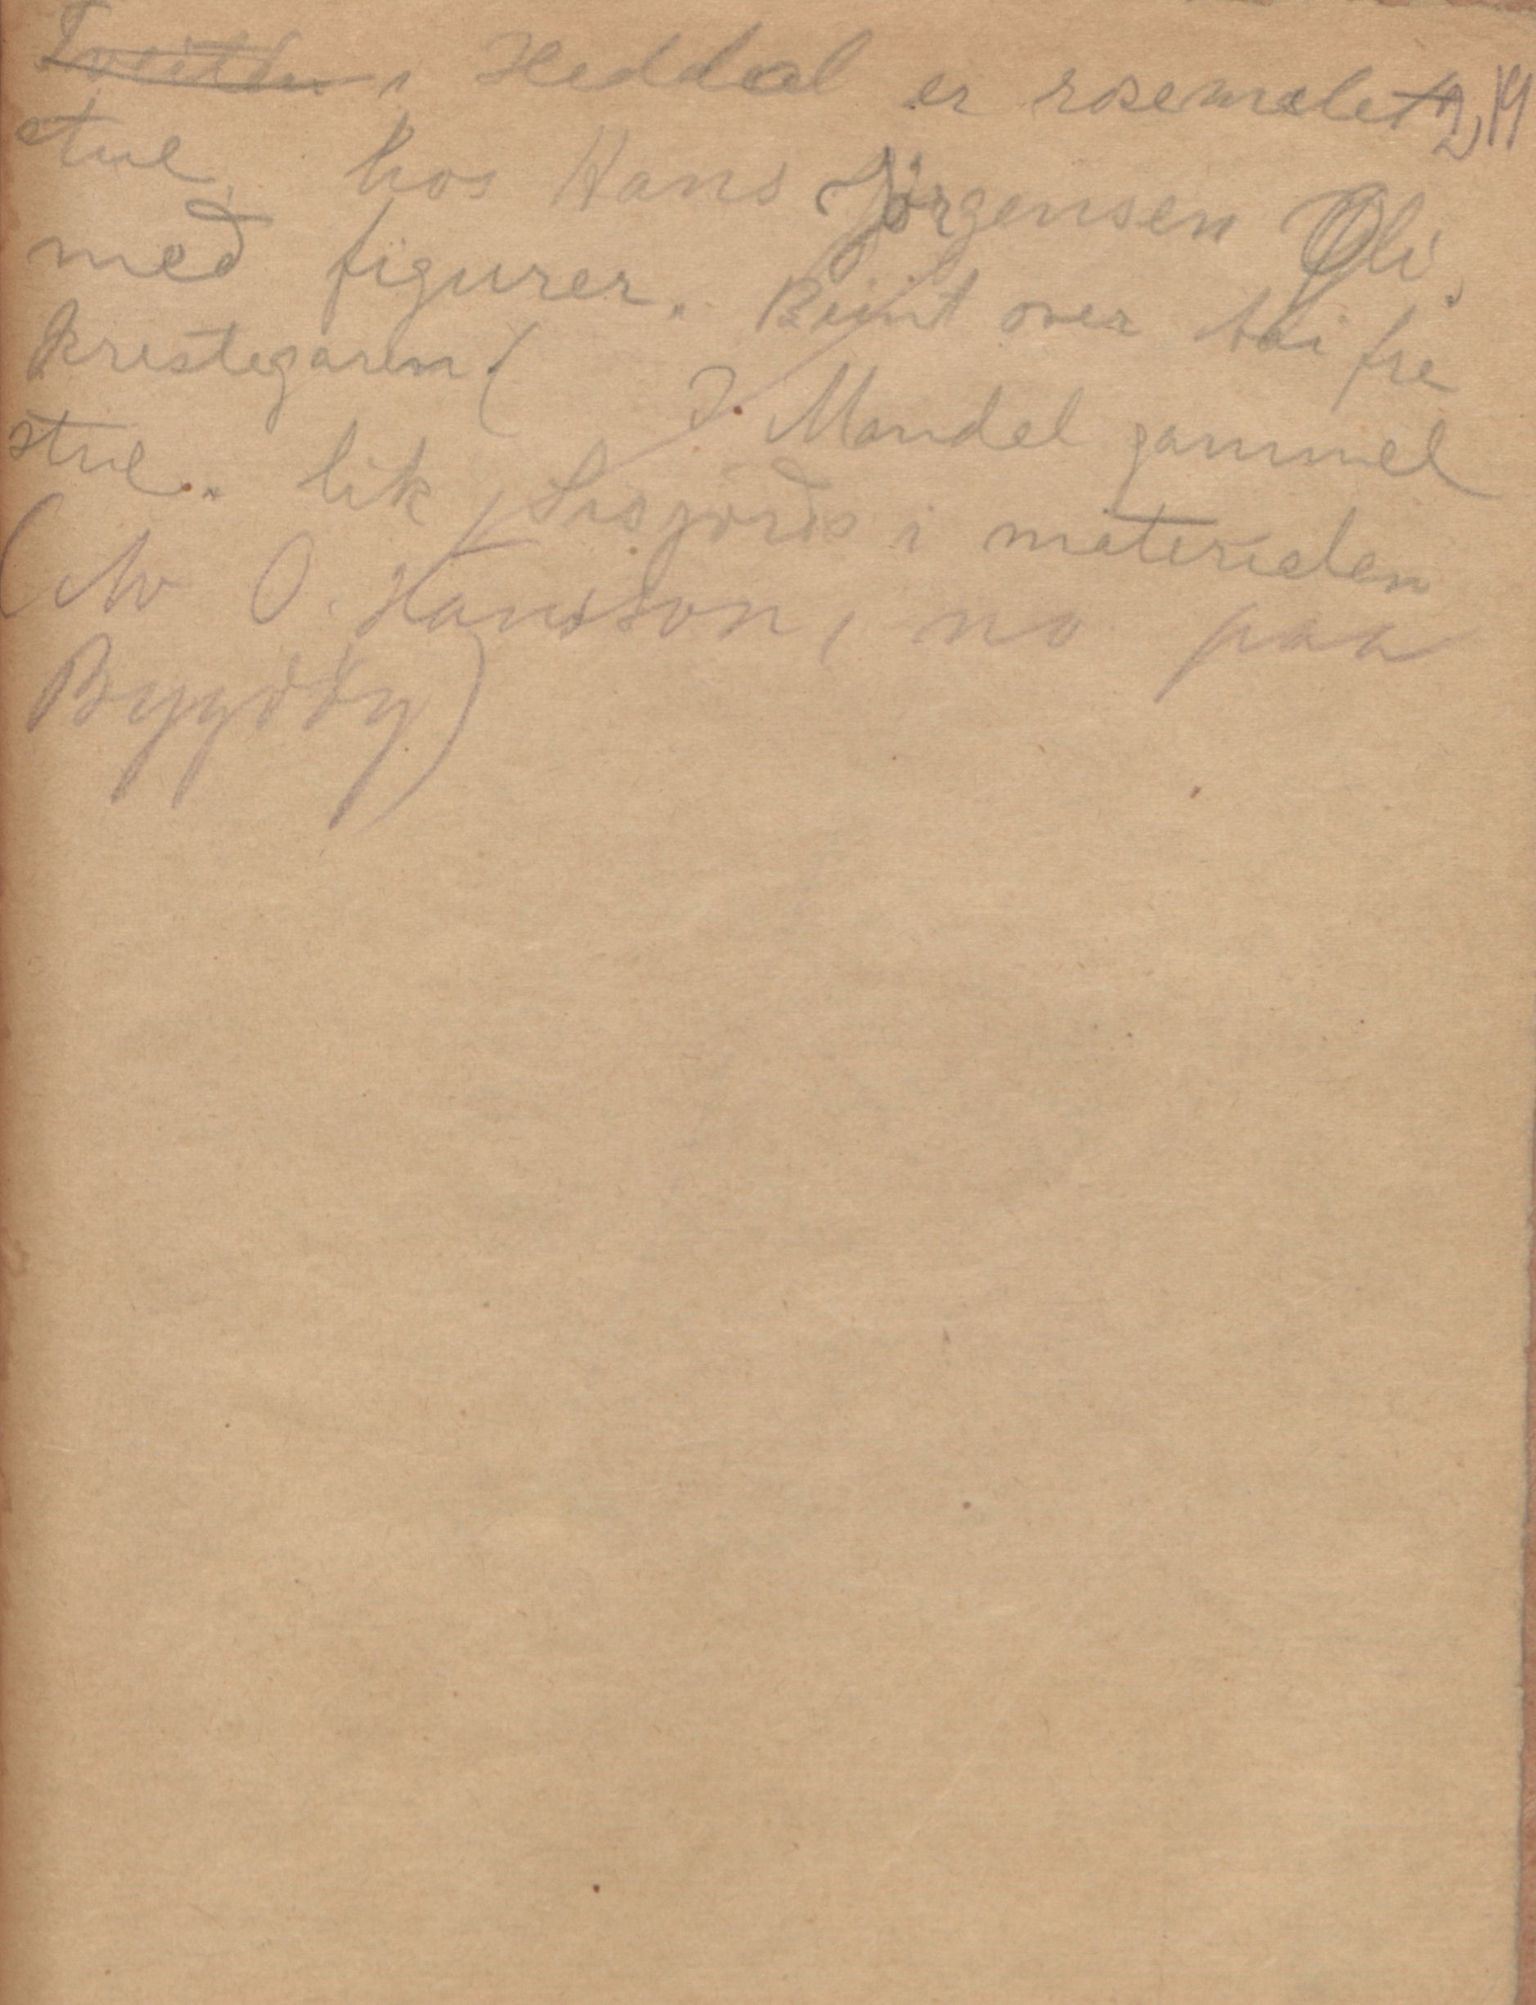 i Heddal er rosemalet 2,19
stue, hos Hans Jørgensen Øli,
med figurer. Beint over fre
Prestegaren ( I Mandel gammel
stue. lik Lisjords i materialen
(Av O. Hansson, no paa
Bygdöy)